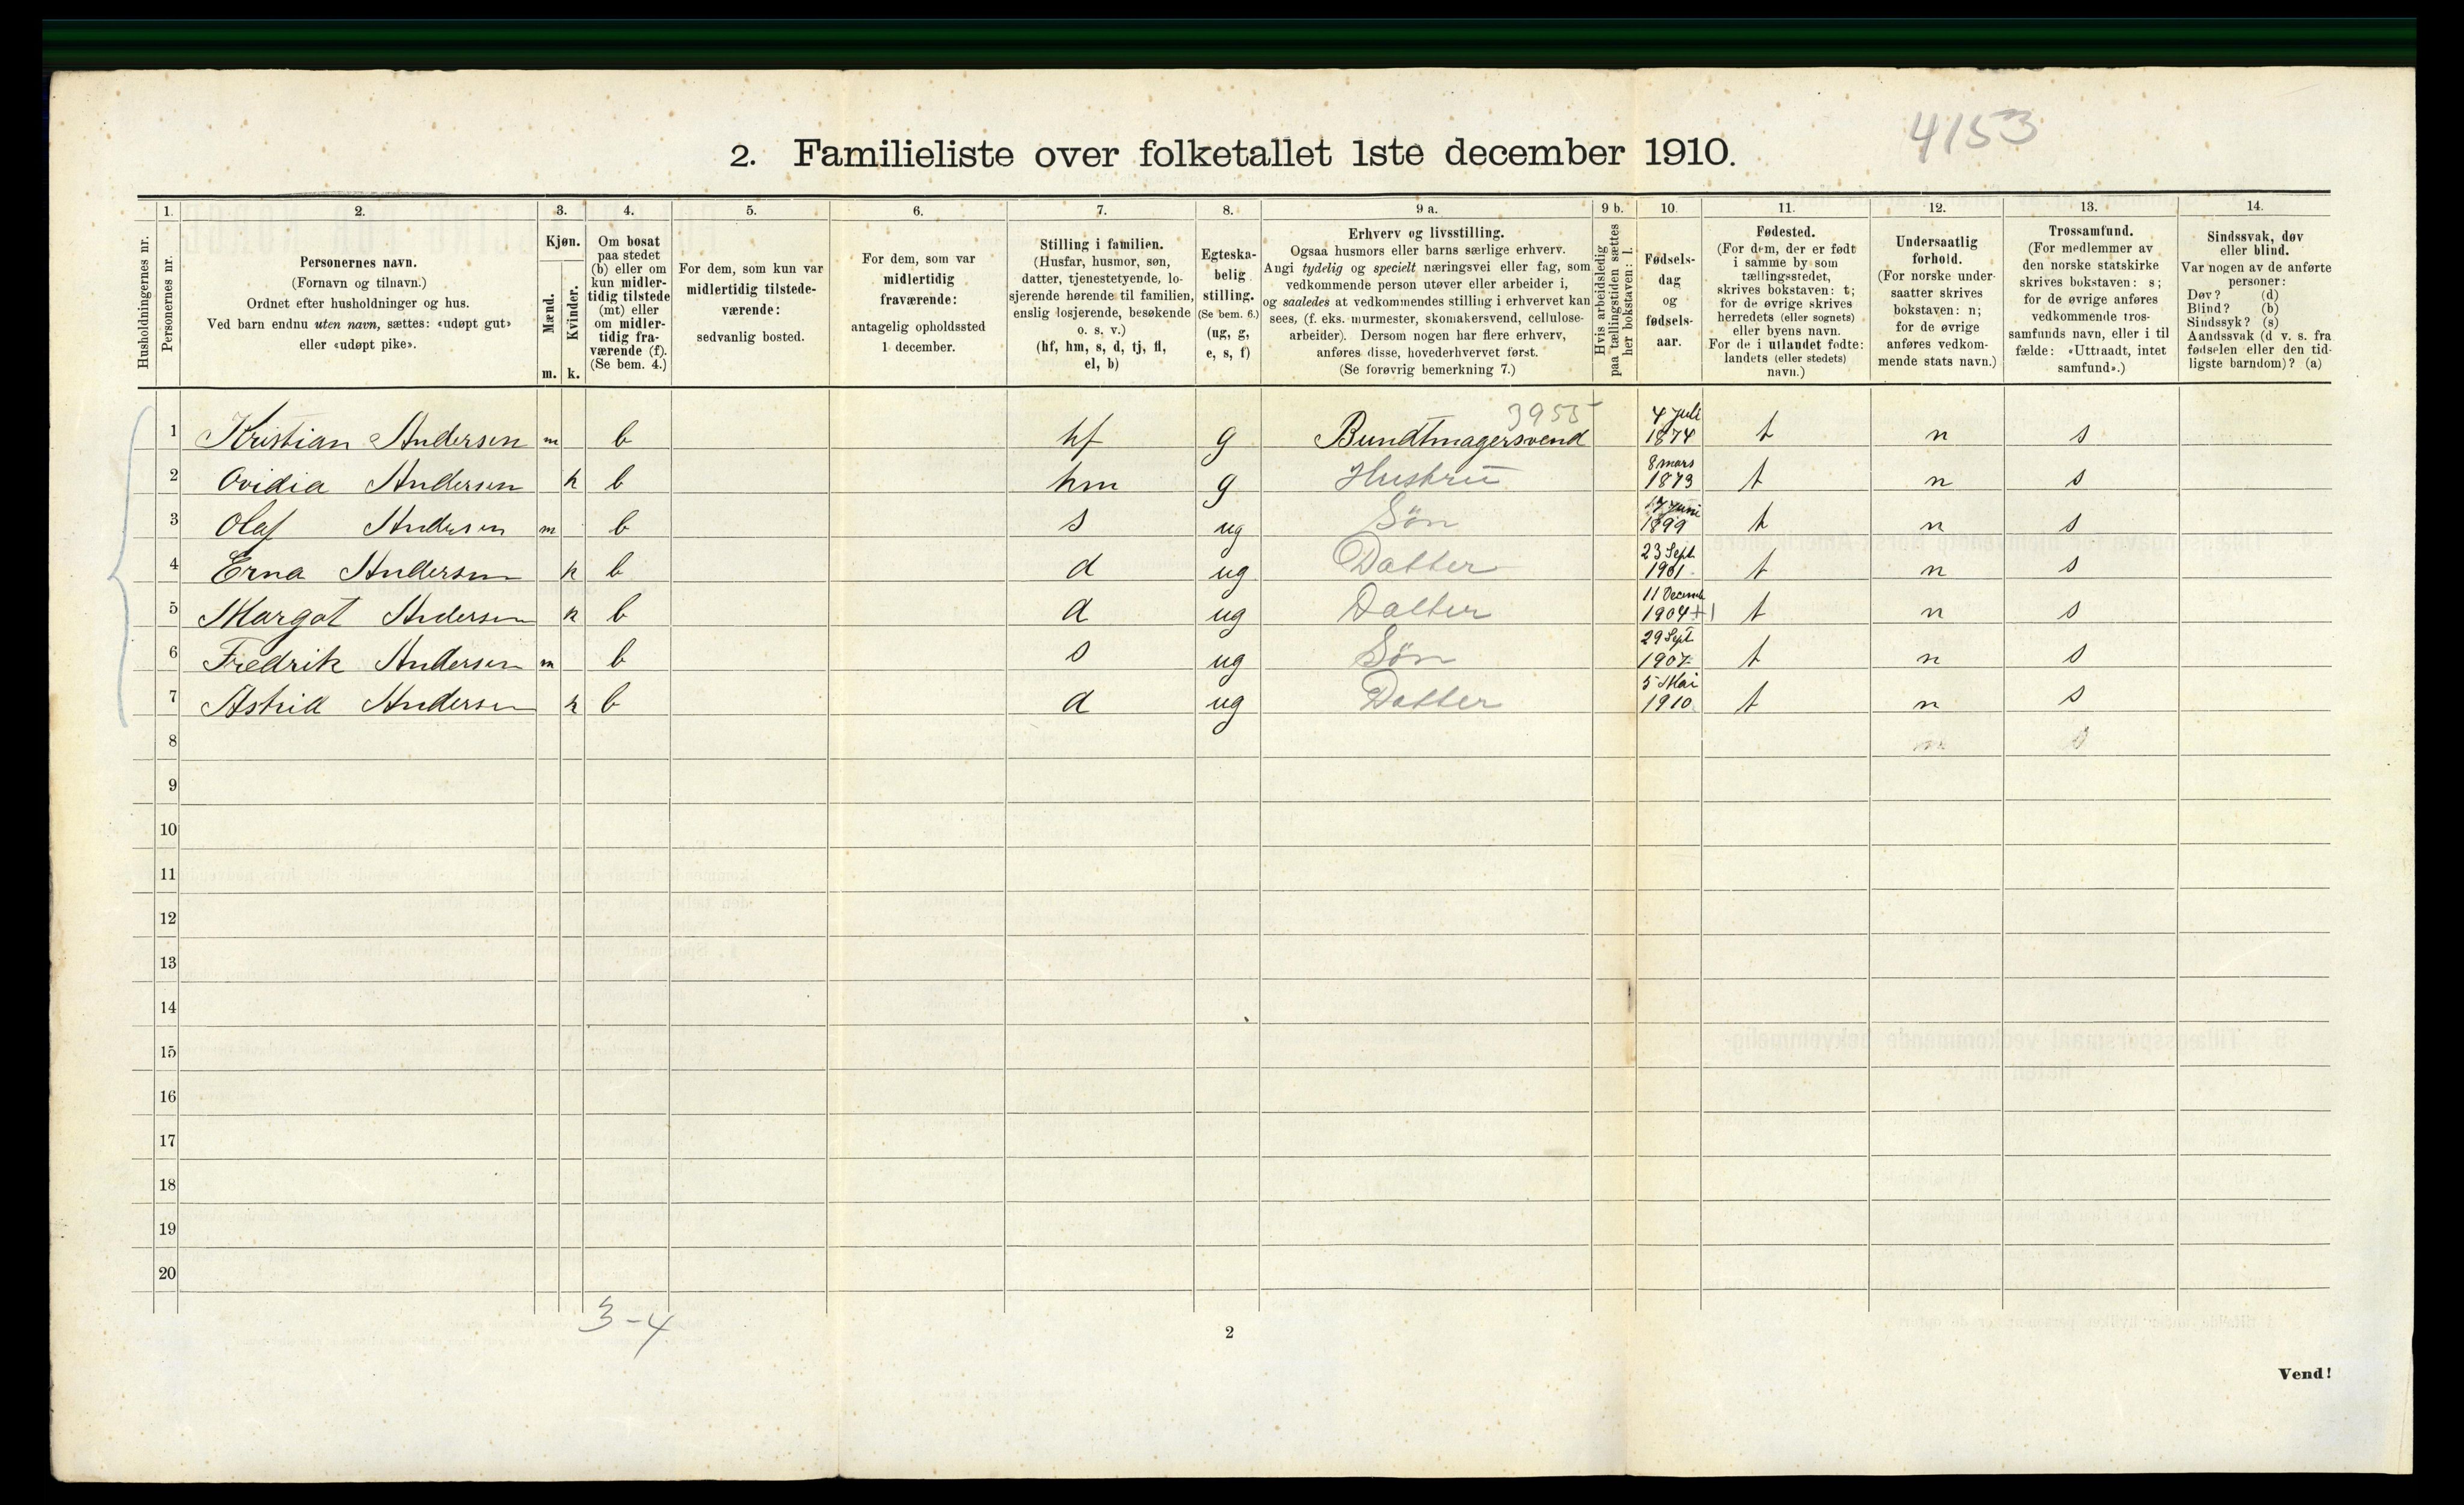 4153
2. Familieliste over folketallet 1ste december 1910.
Husholdningernes nr.
1.
Personernes nr.
2.
Personernes navn.
(Fornavn og tilnavn.)
Ordnet efter husholdninger og hus.
Ved barn endnu uten navn, sættes: «udøpt gut»
eller «udøpt pike».
3.
Kjøn.
Mænd.
Kvinder.
m. k.
4.
Om bosat
paa stedet
(b) eller om
kun midler-
tidig tilstede
(mt) eller
om midler-
tidig fra-
værende (f).
(Se bem. 4.)
5.
For dem, som kun var
midlertidig tilstede-
værende:
sedvanlig bosted.
6.
For dem, som var
midlertidig
fraværende:
antagelig opholdssted
1 december.
7.
Stilling i familien.
(Husfar, husmor, søn,
datter, tjenestetyende, lo-
sjerende hørende til familien,
enslig losjerende, besøkende
o. s. v.)
(hf, hm, s, d, tj, fl,
el, b)
8.
Egteska-
belig
stilling.
(Se bem. 6.)
(ug, g,
e, s, f)
9 a.
Erhverv og livsstilling.
Ogsaa husmors eller barns særlige erhverv.
Angi tydelig og specielt næringsvei eller fag, som
vedkommende person utøver eller arbeider i,
og saaledes at vedkommendes stilling i erhvervet kan
sees, (f. eks. murmester, skomakersvend, cellulose-
arbeider). Dersom nogen har flere erhverv,
anføres disse, hovederhvervet først.
(Se forøvrig bemerkning 7.)
9 b.
Hvis arbeidsledig
paa tællingstiden sættes
her bokstaven: l.
10.
Fødsels-
dag
og
fødsels-
aar.
11.
Fødested.
(For dem, der er født
i samme by som
tællingsstedet,
skrives bokstaven: t;
for de øvrige skrives
herredets (eller sognets)
eller byens navn.
For de i utlandet fødte:
landets (eller stedets)
navn.)
12.
Undersaatlig
forhold.
(For norske under-
saatter skrives
bokstaven: n;
for de øvrige
anføres vedkom-
mende stats navn.)
13.
Trossamfund.
(For medlemmer av
den norske statskirke
skrives bokstaven: s;
for de øvrige anføres
vedkommende tros-
samfunds navn, eller i til
fælde: «Uttraadt, intet
samfund».)
14.
Sindssvak, døv
eller blind.
Var nogen av de anførte
personer:
Døv? (d)
Blind? (b)
Sindssyk? (s)
Aandssvak (d v. s. fra
fødselen eller den tid-
ligste barndom)? (a)
3955
1 Kristian Andersen m b hf g Bundtmagersvend 4 Juli 1874 t n s
2 Ovidia Andersen k b hm g Hustru 8 mars 1873 t n s
3 Olaf Andersen m b s ug Søn 17 Juni 1899 t n s
4 Erna Andersen k b d ug Datter 23 Sept. 1901 t n s
5 Margot Andersen k b d ug Datter 11 Decemb 1904 +1 t n s
6 Fredrik Andersen m b s ug Søn 29 Sept 1907 t n s
7 Astrid Andersen k b d ug Datter 5 Mai 1910 t n s
8
9
10
11
12
13
14
15
16
17
18
19
20
3-4
2
Vend!